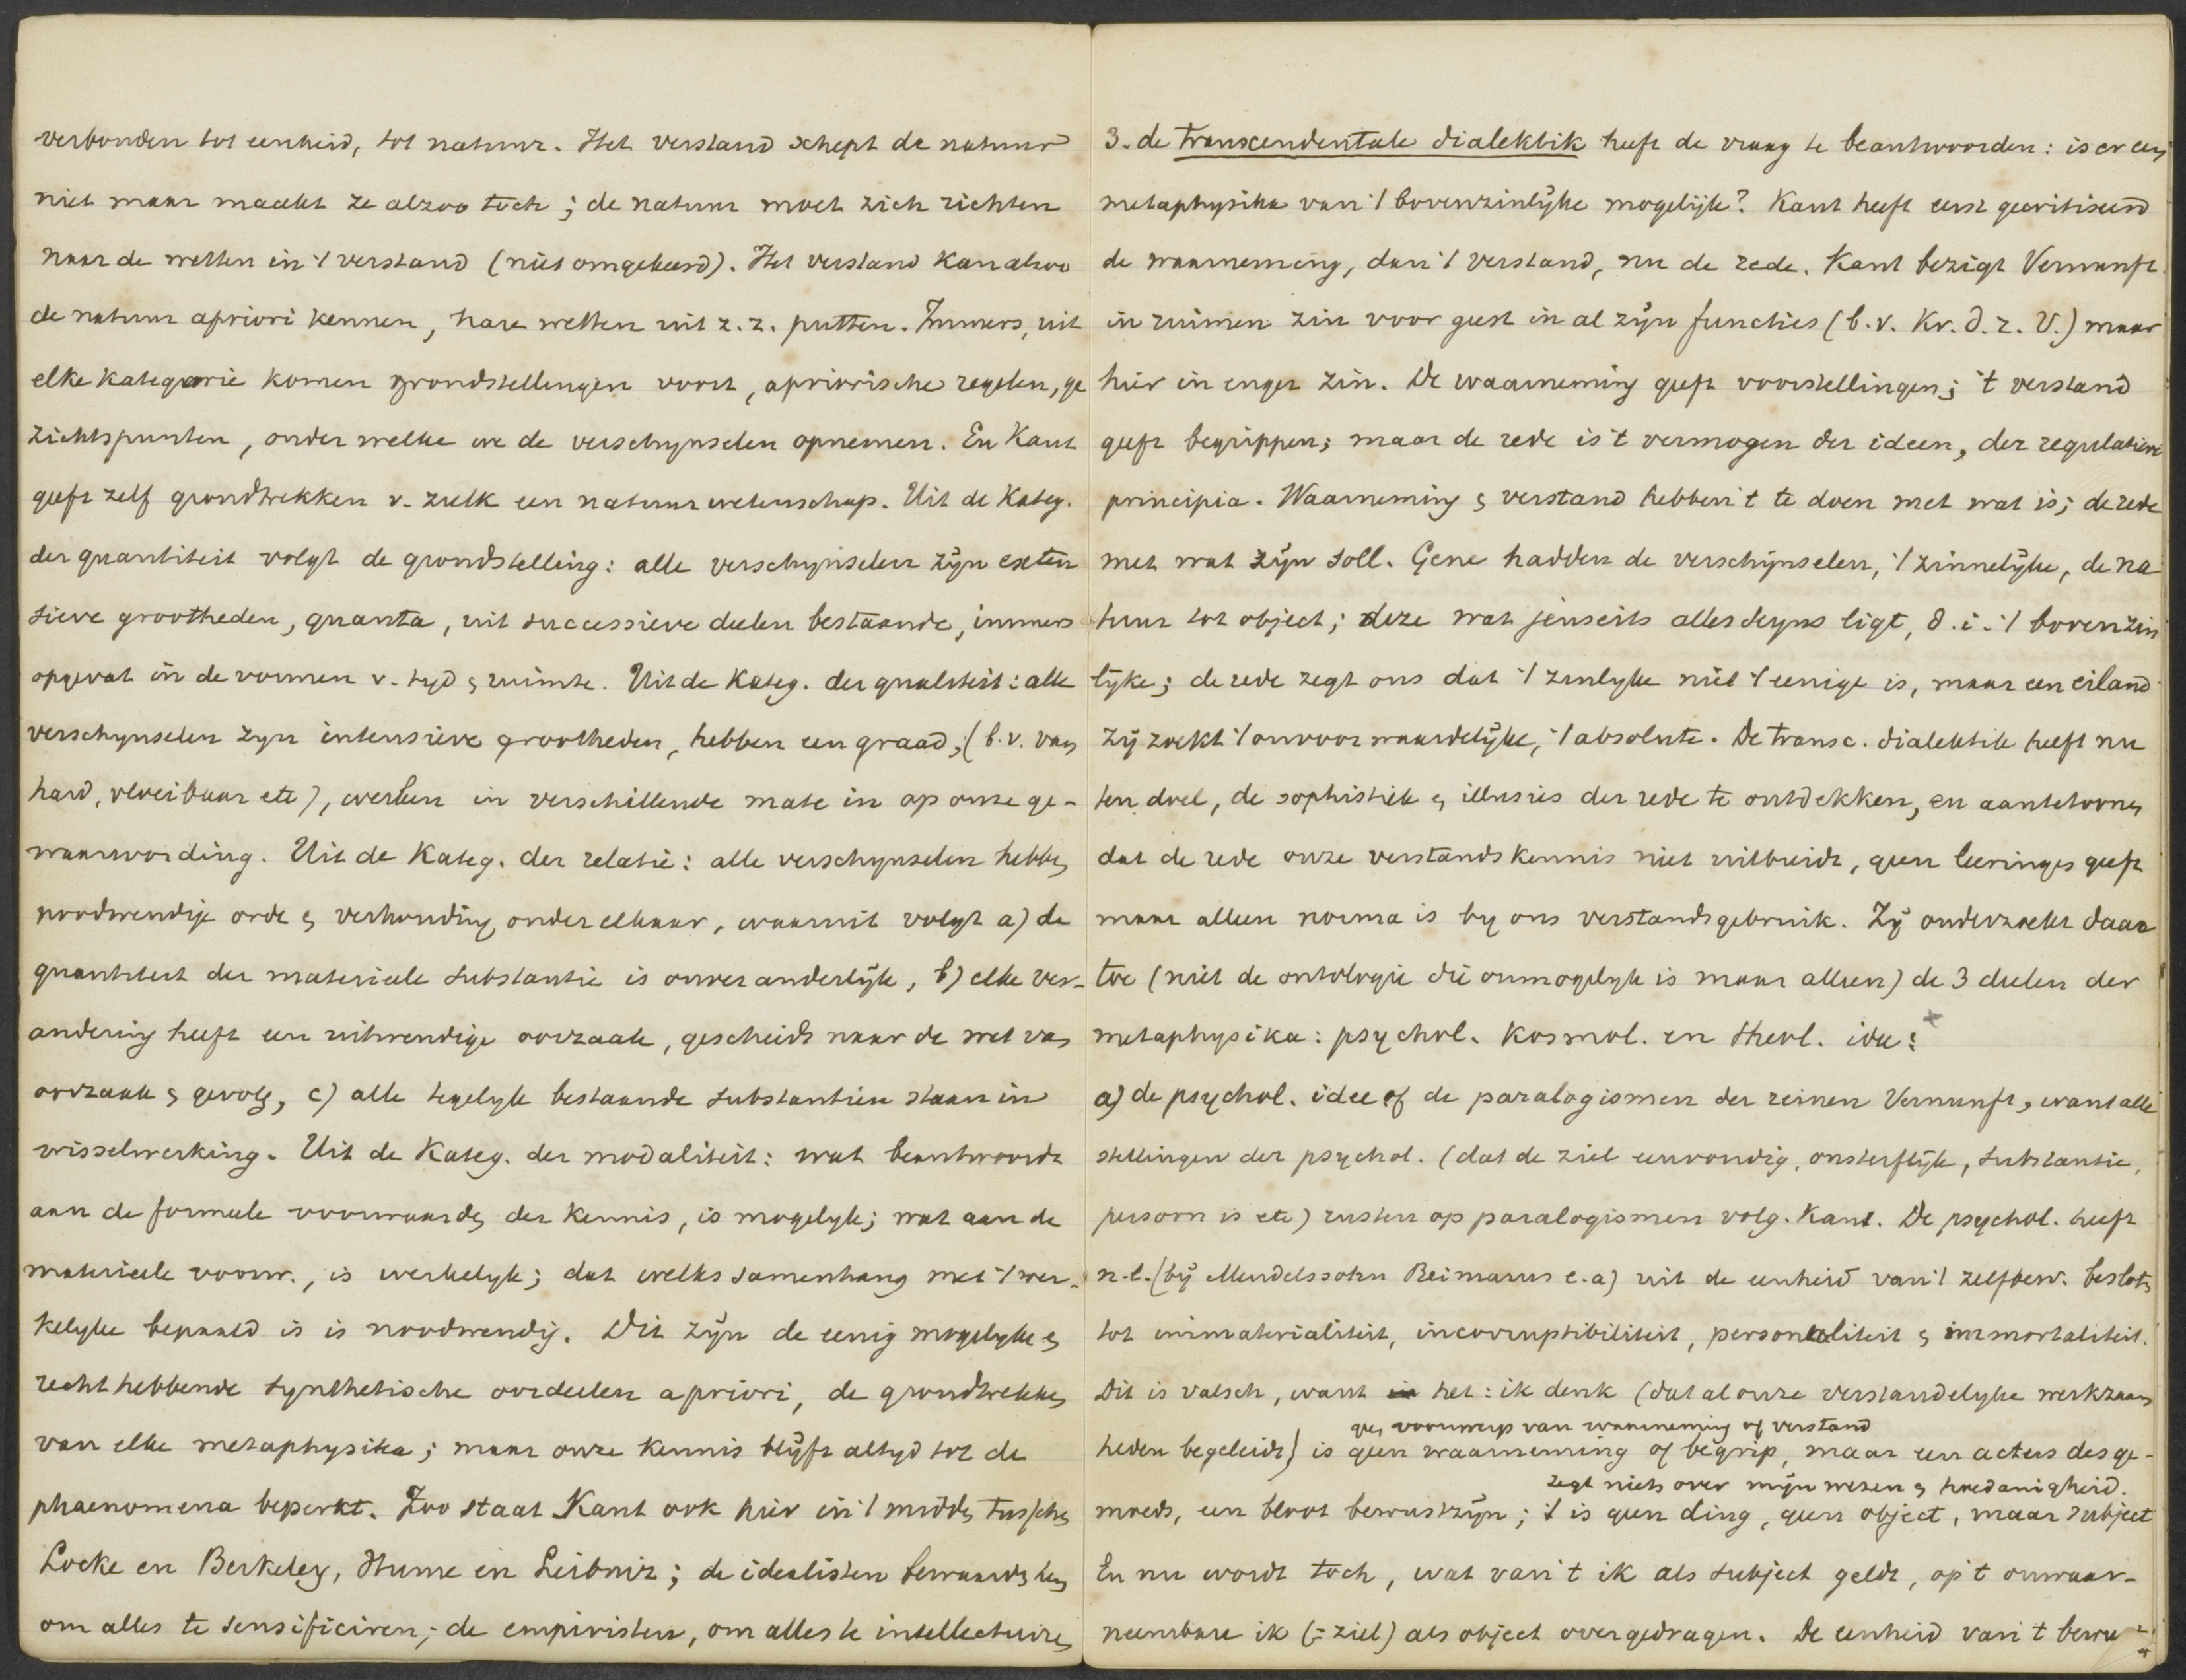 verbonden tot eenheid, tot natuur. Het verstand schept de natuur
niet maar maakt ze alzoo toch; de natuur moet zich richten
naar de wetten in 't verstand (niet omgekeerd). Het verstand kan alzoo
de natuur apriori kennen, hare wetten uit z.z. putten. Immers, uit
elke kategorie komen grondstellingen voort, apriorische regelen, ge
zichtspunten, onder welke we de verschynselen opnemen. En Kant
geeft zelf grondtrekken v. zulk een natuurwetenschap. Uit de Kateg.
der quantiteit volgt de grondstelling: alle verschynselen zijn exten
sieve grootheden, quanta, uit successieve deelen bestaande, immers
opgevat in de vormen v. tyd & ruimte. Uit de Kateg. der qualiteit: alle
verschynselen zyn intensieve grootheden, hebben een graad, (b.v. van
hard, vloeibaar etc), werken in verschillende mate in op onze ge-
waarwording. Uit de Kateg. der relatie: alle verschynselen hebben
noodwendige orde & verhouding onder elkaar, waaruit volgt a) de
quantiteit der materieele substantie is onveranderlijk, b) elke ver-
andering heeft een uitwendige oorzaak, geschiedt naar de wet van
oorzaak & gevolg, c) alle tegelyk bestaande substantien staan in
wisselwerking. Uit de Kateg. der modaliteit: wat beantwoordt
aan de formeele voorwaarden der kennis, is mogelyk; wat aan de
materieele voorw., is werkelyk; dat welks samenhang met 't wer-
kelyke bepaald is is noodwendig. Dit zijn de eenig mogelyke &
recht hebbende synthetische oordeelen apriori, de grondtrekken
van elke metaphysika; maar onze kennis blijft altyd tot de
phaenomena beperkt. Zoo staat Kant ook hier in 't midden tusschen
Locke en Berkeley, Hume en Leibniz; de idealisten bewaarden hem
om alles te sensificiren; de empiristen, om alles te intellectuiren
3. de transcendentale dialektik heeft de vraag te beantwoorden: is er een
metaphysika van 't bovenzinlijke mogelijk? Kant heeft eerst gecritiseerd
de waarneming, dan 't verstand, nu de rede. Kant bezigt Vernunft
in ruimen zin voor geest in al zijn functies (b.v. Kr. d. r. V.) maar
hier in enger zin. De waarneming geeft voorstellingen; 't verstand
geeft begrippen; maar de rede is 't vermogen der ideen, der regulatieve
principia. Waarneming & verstand hebben 't te doen met wat is; de rede
met wat zijn soll. Gene hadden de verschijnselen, 't zinnelijke, de na
tuur tot object; deze wat jenseits alles seyns ligt, d.i. 't bovenzin
lijke; de rede zegt ons dat 't zinlyke niet 't eenige is, maar een eiland.
Zij zoekt 't onvoorwaardelijke, 't absolute. De transc. dialektik heeft nu
ten doel, de sophistiek & illusies der rede te ontdekken, en aantetoonen
dat de rede onze verstandskennis niet uitbreidt, geen leeringen geeft
maar alleen norma is by ons verstandsgebruik. Zij onderzoekt daar
toe (niet de ontologie die onmogelyk is maar alleen) de 3 deelen der
metaphysika: psychol. Kosmol. en theol. idee: x
a) de psychol. idee of de paralogismen der reinen Vernunft, want alle
stellingen der psychol. (dat de ziel eenvoudig, onsterflijk, substantie,
persoon is etc) rusten op paralogismen volg. Kant. De psychol. heeft
n.l. (bij Mendelssohn Reimarus e.a) uit de eenheid van 't zelfbew. besloten
tot immaterialiteit, incorruptibiliteit, personaliteit & immortaliteit.
Dit is valsch, want in het: ik denk (dat al onze verstandelyke werkzaam
geen voorwerp van waarneming of verstand
heden begeleidt) is geen waarneming of begrip, maar een actus des ge-
zegt niets over mijn wezen & hoedanigheid.
moeds, een bloot bewustzijn; 't is geen ding, geen object, maar subject
En nu wordt toch, wat van 't ik als subject geldt, op 't onwaar-
neembare ik (= ziel) als object overgedragen. De eenheid van 't bewu